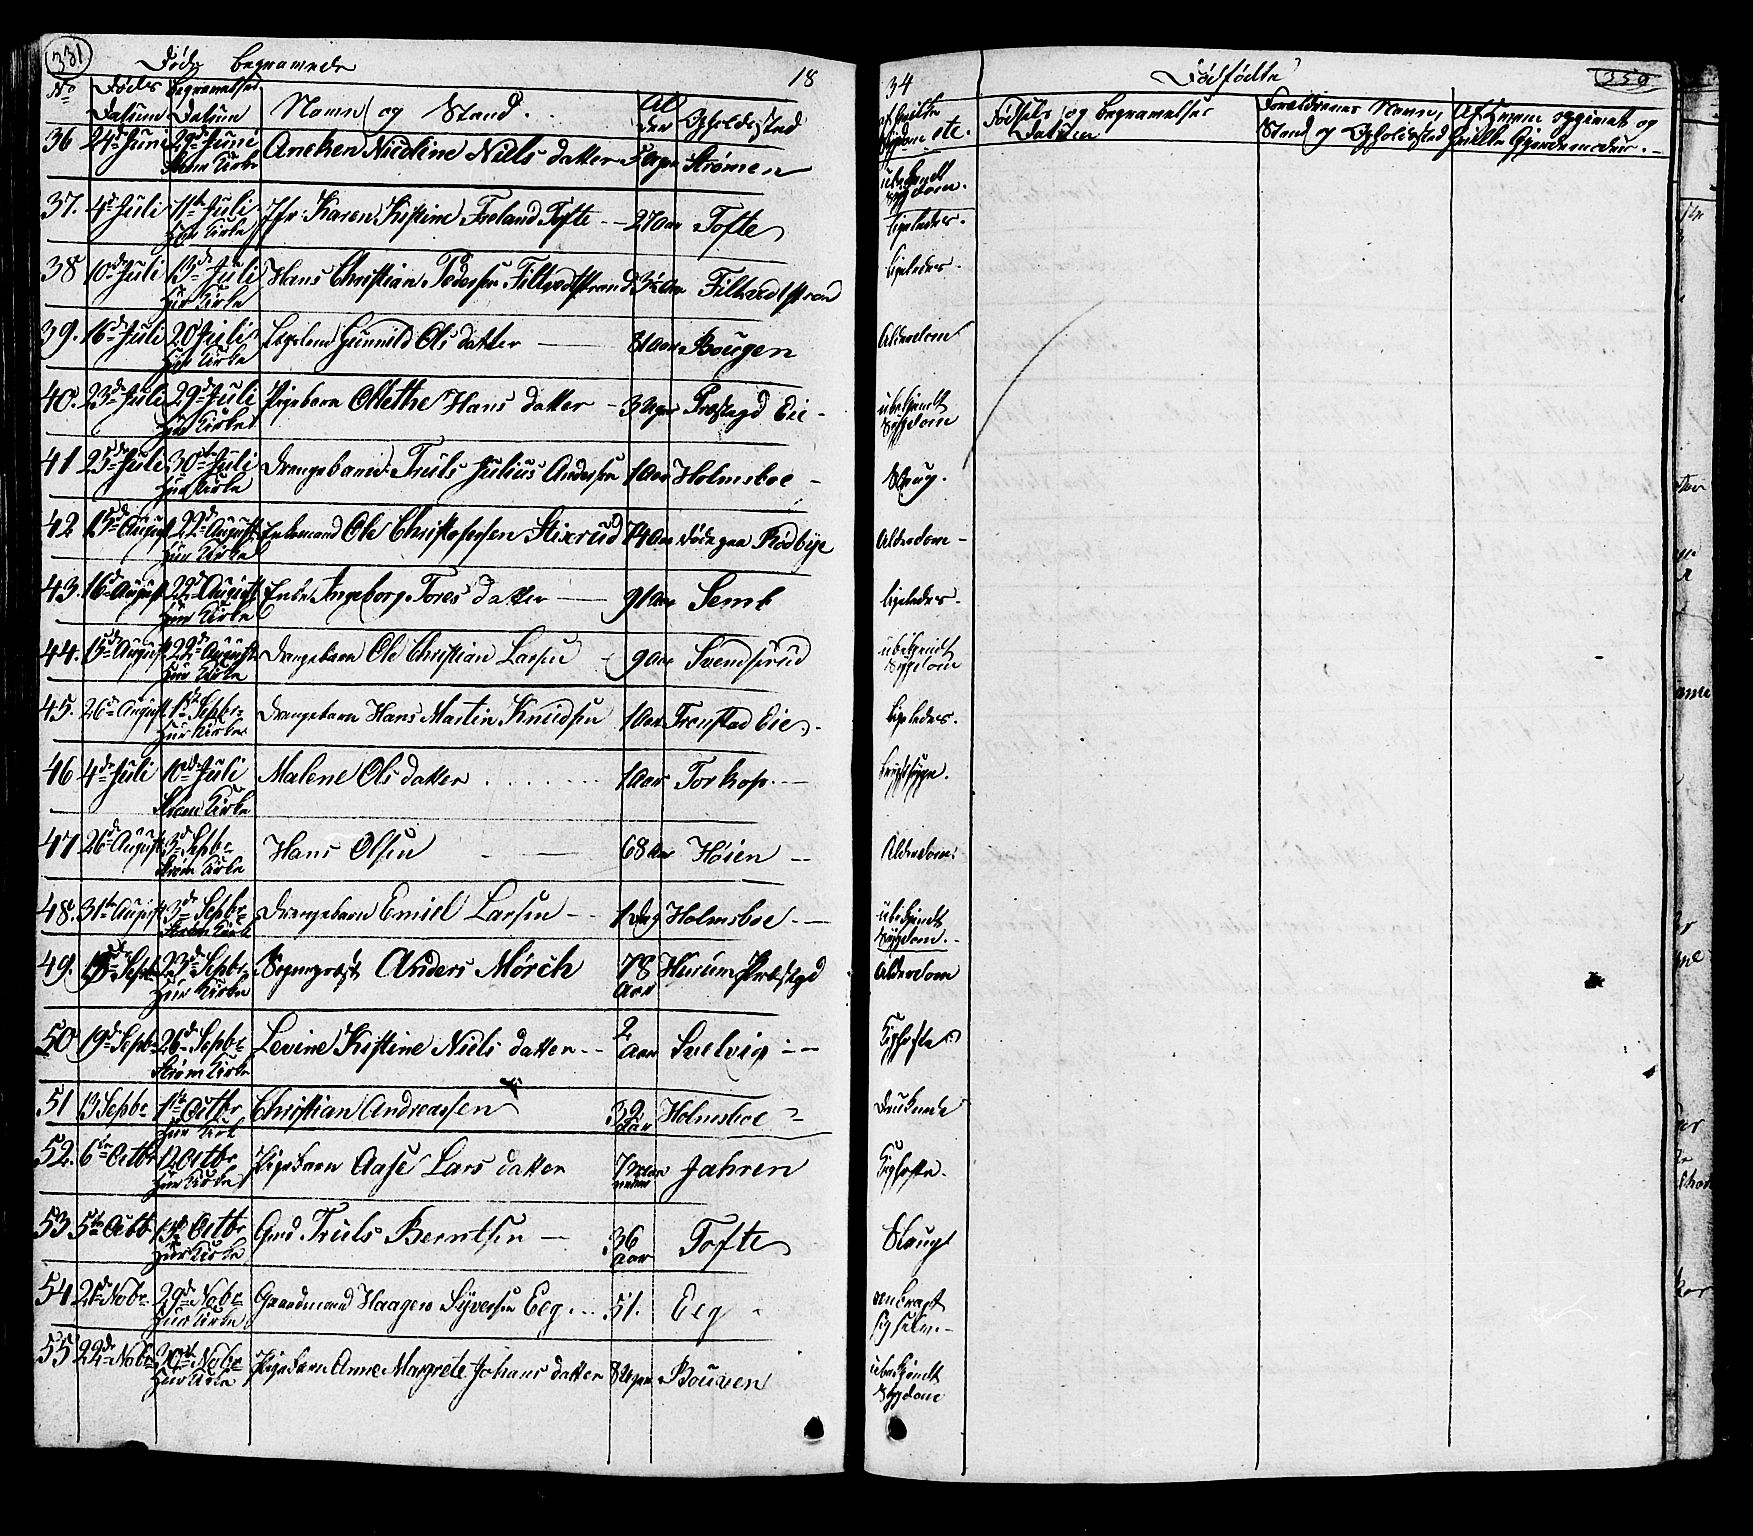 331
Døde begravede 18
No Døds Datum Begravelses Datum Navn og Stand. Alder Opholdssted
36 24de Juni 29de Juni Strøm Kirke Aneken Nicoline Niels datter 5 Uger Strømen
37. 4de Juli 11te Juli Hur Kirke Jfr. Karen Kistine Froland Tofte - 27 Aar Tofte
38 10de Juli 13de Juli Hur Kirke Hans Christian Pedersen Filtvedtstrand 3½ Aar Filtvedtstrand
39. 16de Juli 20 Juli Hur Kirke Gunnild Ols datter 81 Aar Bougen
40. 23de Juli 29de Juli Hur Kirke Pigebarn Olethe Hans datter - 3 Uger Præstegd Eie -
41 25de Juli 30te Juli Hur Kirke Drengebarn Truls Julius Andersen 1 Aar Holmsboe -
42 15de August 22de August Hur Kirke Enkemand Ole Christophersen Stixrud 74 Aar døde paa Rødbye
43. 16de August 22de August Hur Kirke Enke Ingeborg Tores datter 91 Aar Semb
44. 15de August 22de August Hur Kirke Drengebarn Ole Christian Larsen 9 Aar Svendsrud
45. 26de August 1ste Sepbr Hur Kirke Drengebarn Hans Martin Knudsen 1 Aar Tronstad Eie
46 4de Juli 10de Juli Strøm Kirke Malene Ols datter 1 Aar Torkop
47 26de August 3de Sepbr Strøm Kirke Hans Olsen 68 Aar Høien
48. 31te August 3de Sepbr Strøm Kirke Drengebarn Emiel Larsen - 1 Dag Holmsboe
49. Sepbr 23de Sepbr Hur Kirke Sognepræst Anders Mørch 78 Aar Hurum Præstegd
50 19de Sepbr 26de Sepbr Strøm Kirke Levine Kistine Niels datter 2 Aar Svelvig
51 13 Sepbr 1ste Octbr Hur Kirk Christian Andreassen 32 Aar Holmsboe
52. 6te Octbr 12 Octbr Hur Kirke Pigebarn Aase Lars datter 7 Jahren
53 5te Octbr 13de Octbr Hur Kirke Gmd Truls Berntsen 36 Aar Tofte
54 21de Nobr 29de Nobr Hur Kirke Gaardmand Haagen Syversen Eeg 51. Eeg
55 22de Nobr 30te Nobr Hur Kirke Pigebarn Anne Margrete Johans datter 8 Uger Bouven
34 Dødfødte 350
af hvilke Sygdom etc. Fødsels og Begravelses Datum Forældrenes Navn, Stand og Opholdssted Af hvem opgivet og hvilke Gjordemødre.
ubekjendt Sygdom.
ligeledes.
ligeledes.
Alderdom
ubekjendt Sygdom
Alderdom
ligeledes.
ubekjendt Sygdom
ligeledes.
Alderdom.
ubekjendt Sygdom.
Alderdom
Kighoste
Druknede
Kighoste.
ubekjendt Sygdom